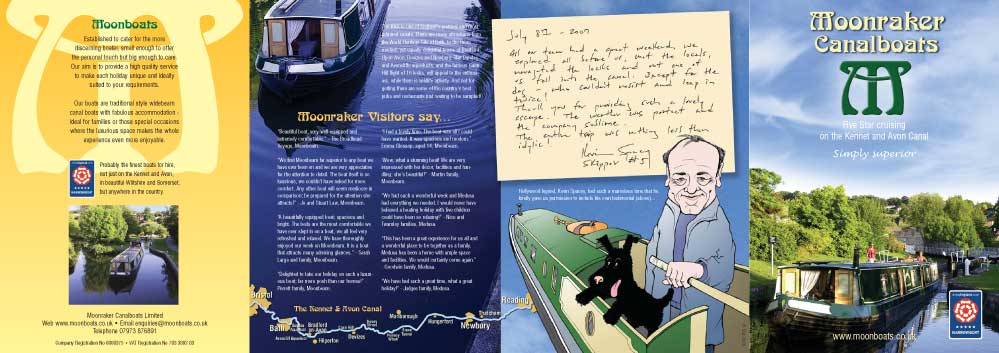 Moonboats
Established to cater for the more
discerning boater, small enough to offer
the personal touch but big enough to care.
Our aim is to provide a high quality service
to make each holiday unique and ideally
suited to your requirements.
Our boats are traditional style widebeam
canal boats with fabulous accommodation -
ideal for families or those special occasions
where the luxurious space makes the whole
experience even more enjoyable.
Probably the finest boats for hire,
not just on the Kennet and Avon,
in beautiful Wiltshire and Somerset,
but anywhere in the country.
Moonraker Canalboats Limited
Web www.moonboats.co.uk • Email enquiries@moonboats.co.uk
Telephone 07973 876891
Moonraker Visitors say...
"Beautiful boat, very well equipped and
extremely comfortable." - The Broadhead
Voyage, Moonbeam.
"We find Moonbeam far superior to any boat we
have ever been on and we are very appreciative
for the attention to detail. The boat itself is so
luxurious, we couldn't have asked for more
comfort. Any other boat will seem mediocre in
comparison; be prepared for the attention she
attracts!" - Jo and Stuart Law, Moonbeam.
"A beautifully equipped boat; spacious and
bright. The beds are the most comfortable we
have ever slept in on a boat, we all feel very
refreshed and relaxed. We have thoroughly
enjoyed our week on Moonbeam. It is a boat
that attracts many admiring glances." - Sarah
Large and family, Moonbeam.
"Delighted to take our holiday on such a luxuri-
ous boat; far more posh than our home!" -
Perrett family, Moonbeam.
"I had a lovely time. The boat was all I could
have wanted. It was spacious and modern." -
Emma Glossop, aged 14, Moonbeam.
"Wow, what a stunning boat! We are very
impressed with her decor, facilities and han-
dling; she's beautiful!" - Martin family,
Moonbeam.
"We had such a wonderful week and Medusa
had everything we needed. I would never have
believed a boating holiday with five children
could have been so relaxing!" - Rice and
Townsley families, Medusa.
"This has been a great experience for us all and
a wonderful place to be together as a family.
Medusa has been a home with ample space
and facilities. We would certainly come again."
- Goodwin family, Medusa.
"We have had such a great time, what a great
holiday!" - Judges family, Medusa.
The Kennet & Avon Canal
Bristol
Bath
Bradford
on Avon
Hilperton
Devizes
Marlborough
Hungerford
Newbury
Thatcham
Reading
July 8th - 2007
All our team had a great weekend, we
explored all before us, met the locals,
navigated the locks and not one of
us fell into the canal. Except for the
dog - who couldn't resist and leap
twice!
Thank you for providing such a lovely
escape. The weather was perfect and
the company sublime.
The entire trip was nothing less than
idyllic!
Kevin Spacey
Skipper #5
Hollywood legend, Kevin Spacey, had such a marvelous time that he
kindly gave us permission to include his own testimonial (above)...
Moonraker
Canalboats
Five Star cruising
on the Kennet and Avon Canal
Simply superior
www.moonboats.co.uk